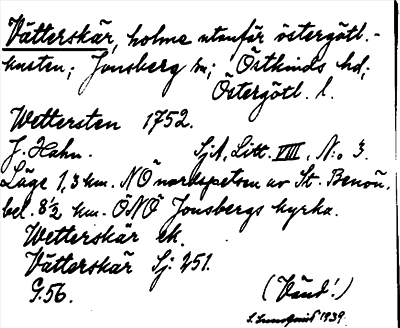 Vätterskär, holme utanför östergötl.-
kusten; Jonsberg sn; Östkinds hd;
Östergötl. l.
Wettersten 1752.
J. Hahn. SjA, Litt. VIII, N:o 3.
Läge 1,3 km. NÖ nordspetsen av St. Benön,
bel. 8½ km. ÖNÖ Jonsbergs kyrka.
Wetterskär ek.
Vätterskär Sj: 251.
G:56.
(Vänd!)
1939.